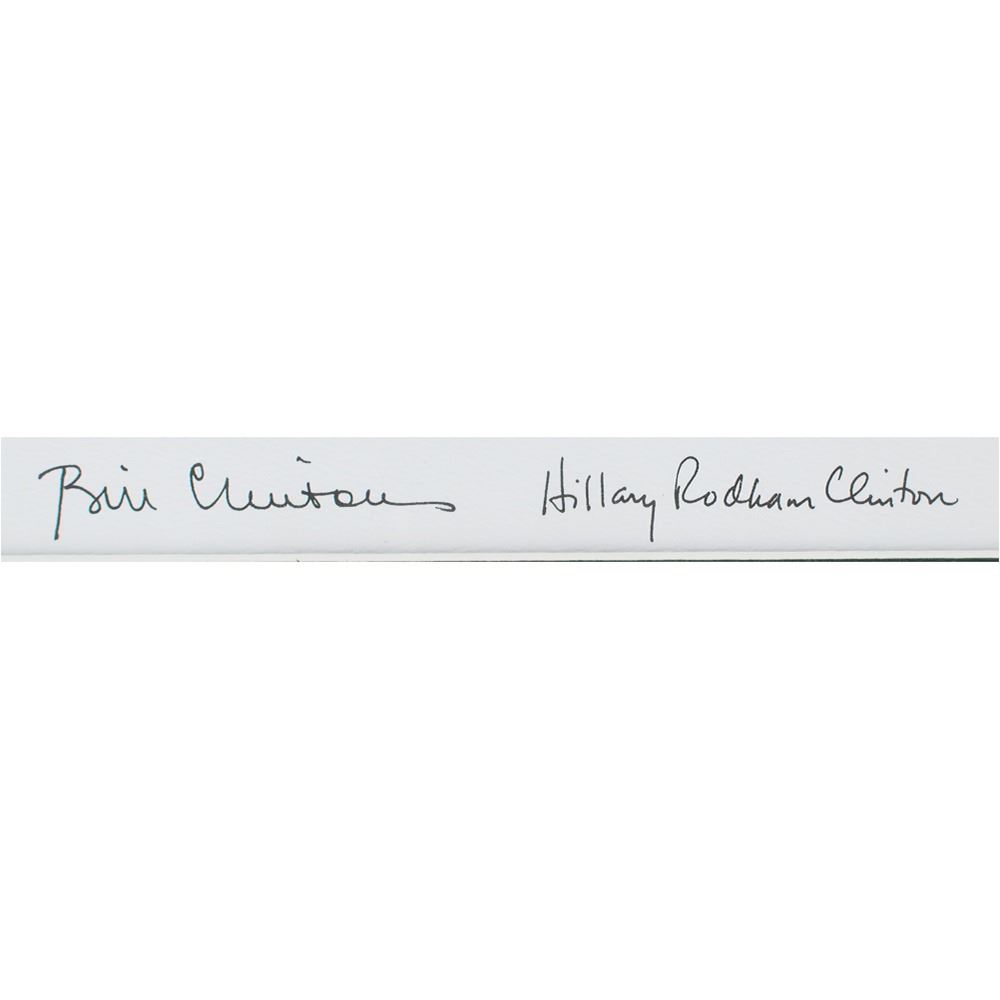 Bill Clinton Hillary Rodham Clinton